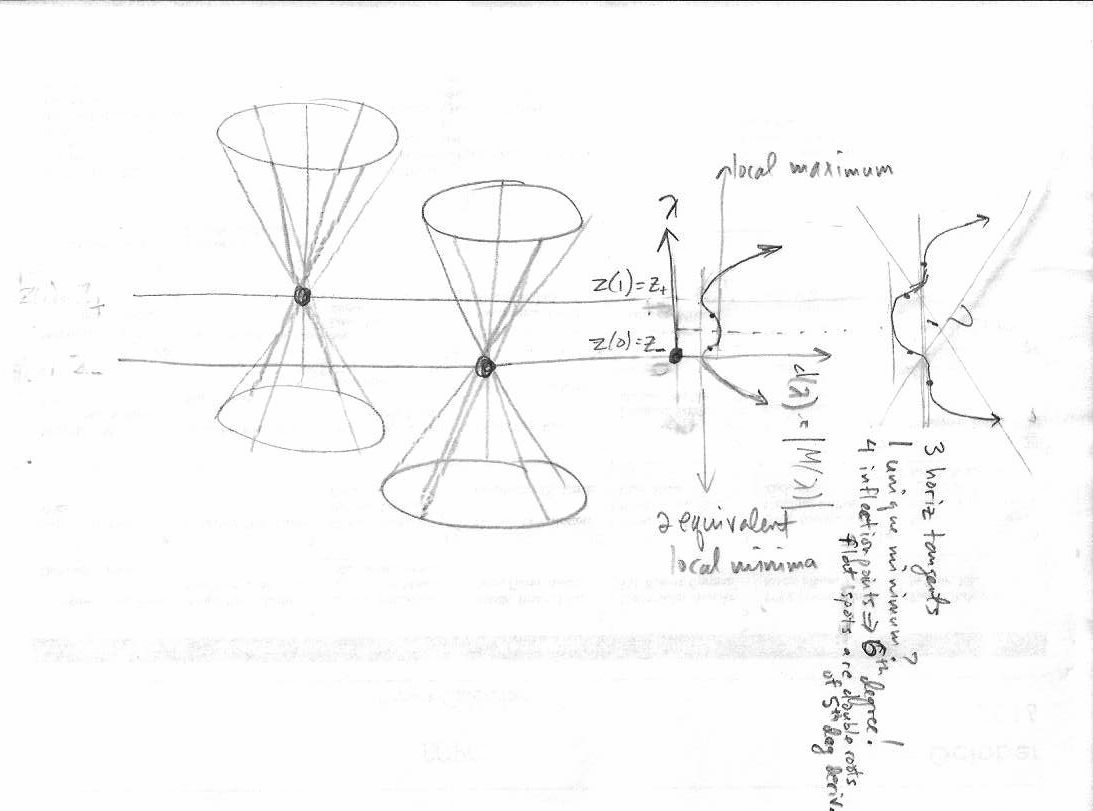 local maximum
λ
z(1)=z₊
z(0)=z₋
d(λ)=|M(λ)|
2 equivalent
local minima
?
3 horiz tangents
1 unique minimum?
4 inflection points ⇒ 6th degree!
flat spots are double roots
of 5th deg deriv.
October